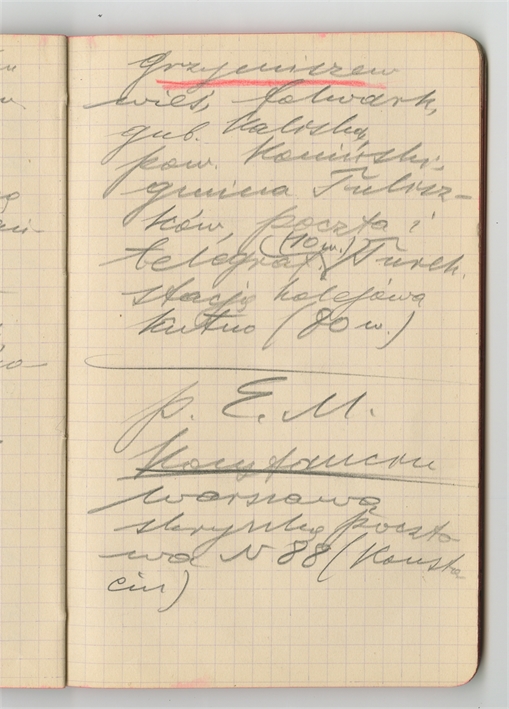 Grzymiszew
wieś, folwark,
gub. Kaliska,
pow. Koniński,
gmina Tulisz-
ków, poczta i
(10 w.)
telegraf. Turek.
Stacja kolejowa
Kutno (80 w.)
p. E. M.
Warszawa,
skrzynka poczto-
wa N 88 (Konsta
cin)